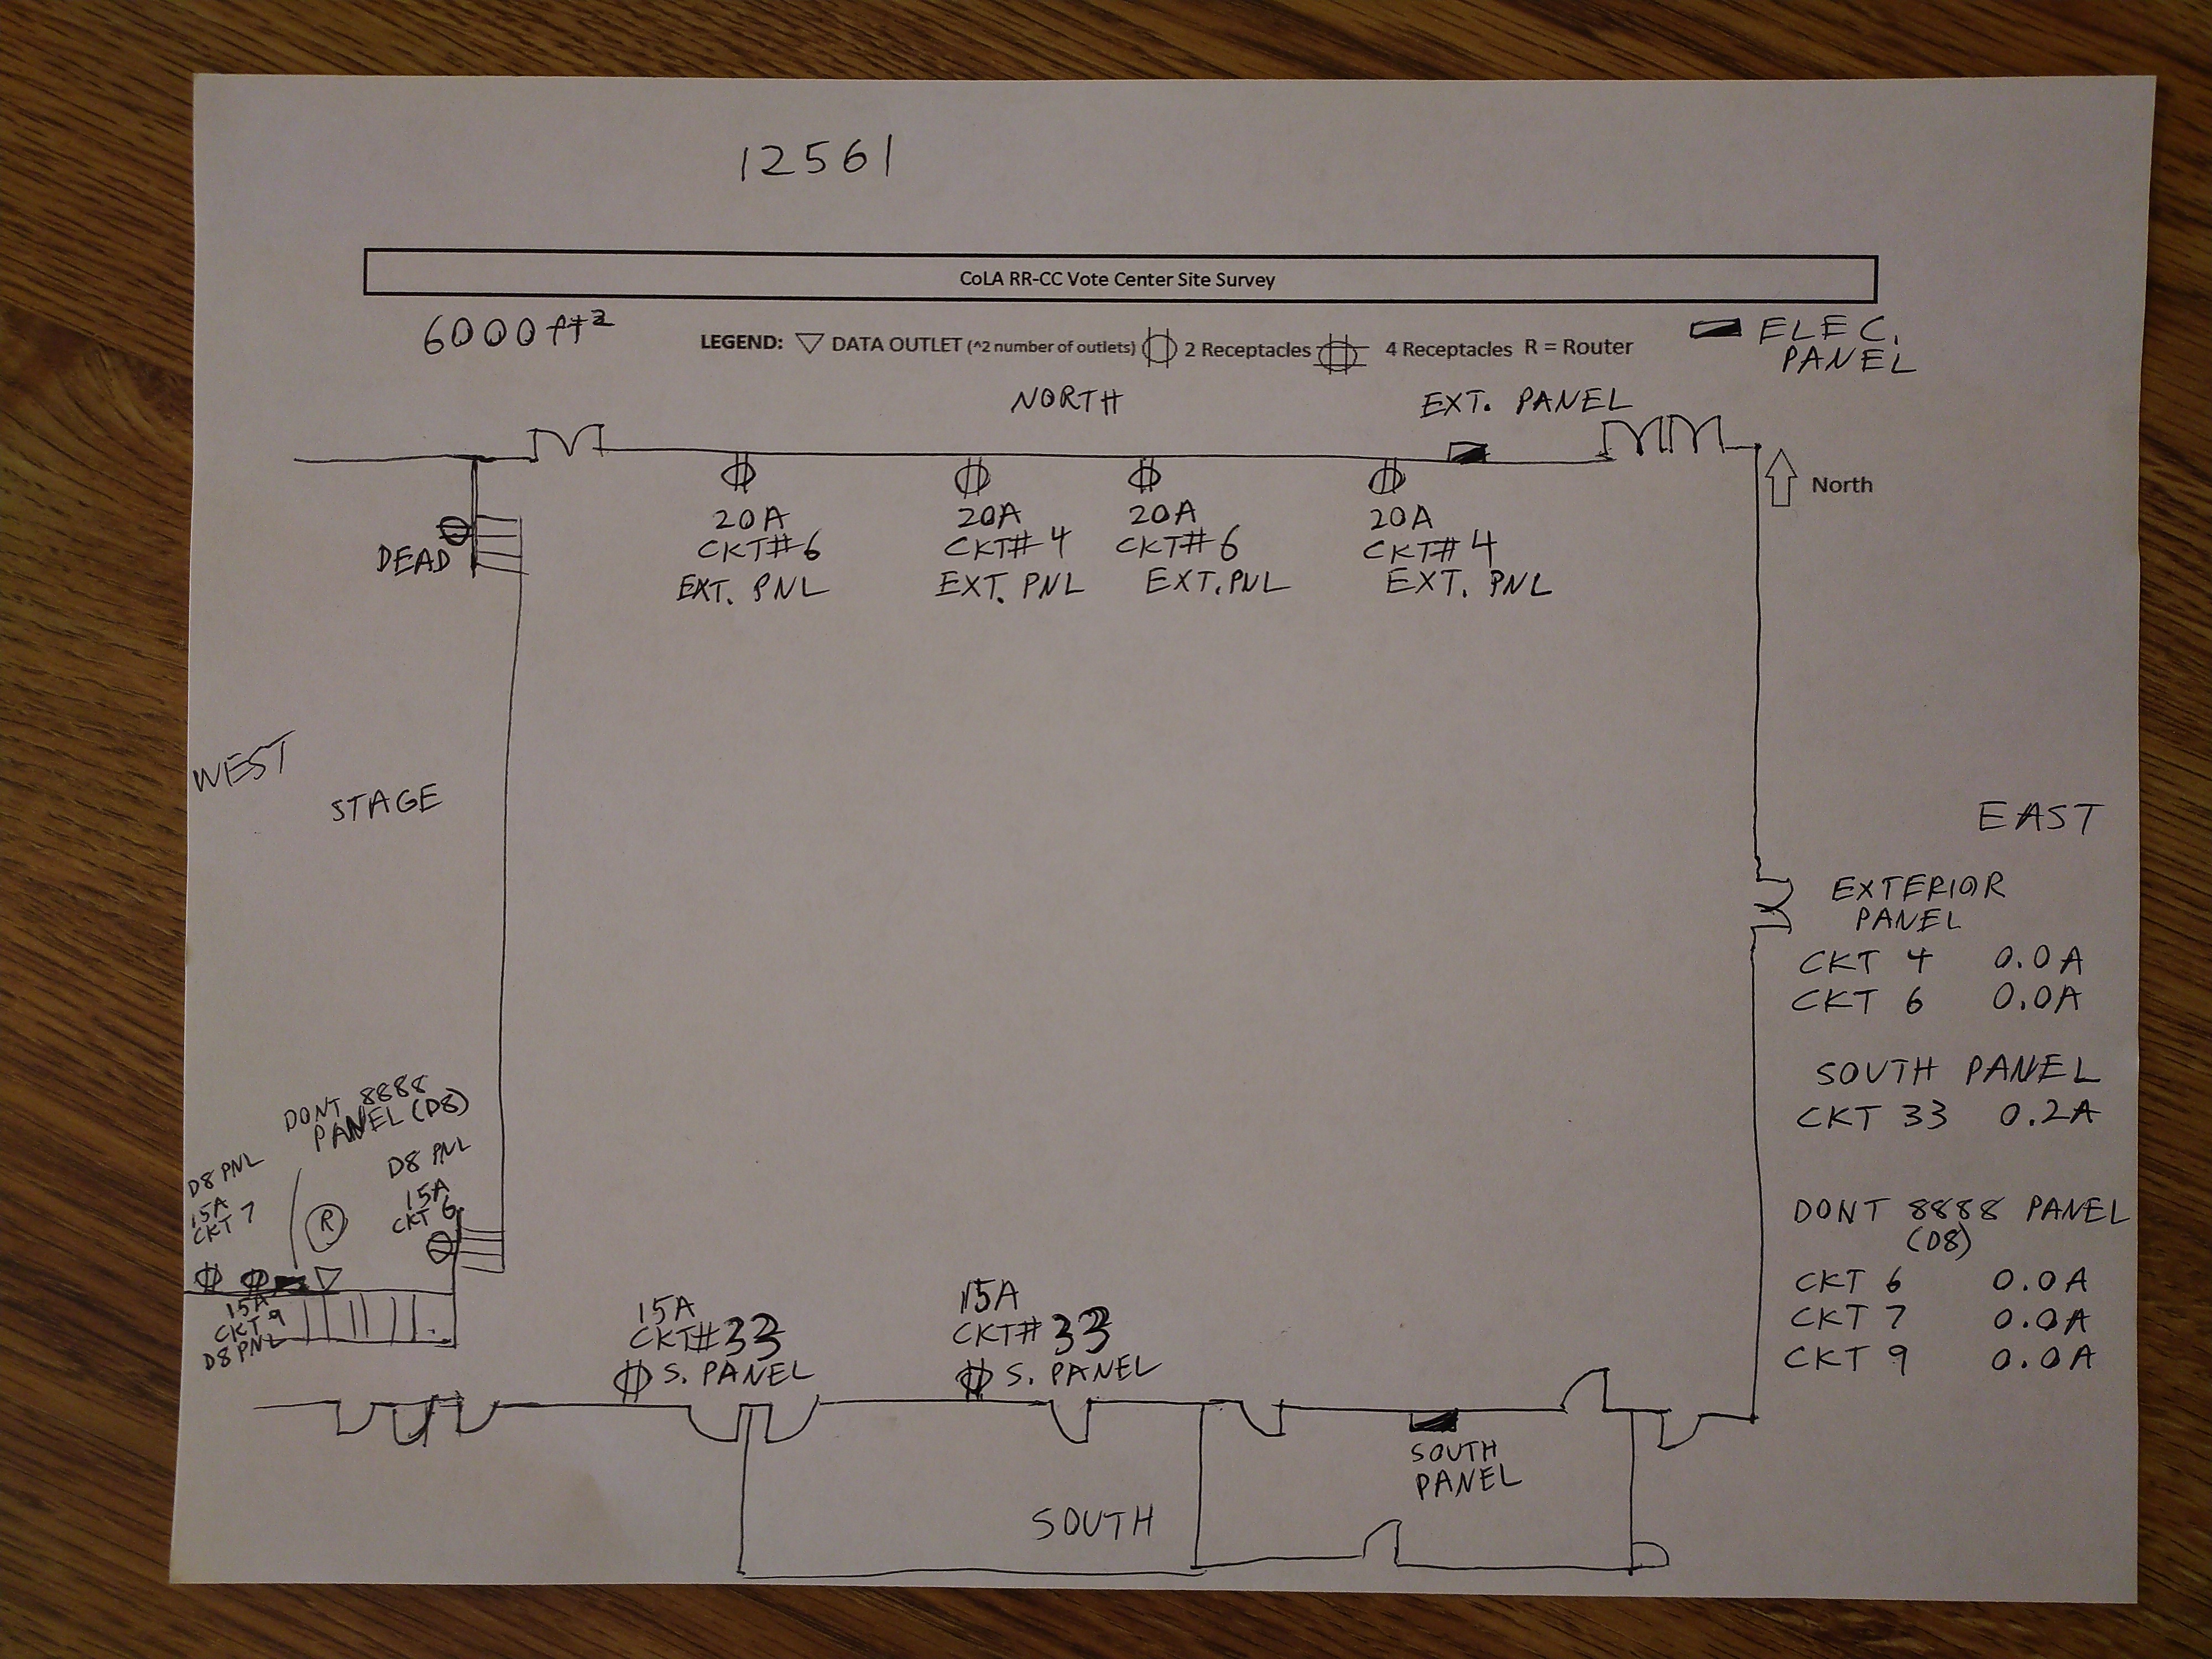 12561
CoLA RR-CC Vote Center Site Survey
6000 ft²
LEGEND: ▽ DATA OUTLET (^2 number of outlets) 2 Receptacles 4 Receptacles R = Router
ELEC.
PANEL
NORTH
EXT. PANEL
North
DEAD
20A
CKT# 6
EXT. PNL
20A
CKT# 4
EXT. PNL
20A
CKT# 6
EXT. PNL
20A
CKT# 4
EXT. PNL
WEST
STAGE
EAST
EXTERIOR
PANEL
CKT 4 0.0A
CKT 6 0.0A
SOUTH PANEL
CKT 33 0.2A
DONT 8888 PANEL
(D8)
CKT 6 0.0A
CKT 7 0.0A
CKT 9 0.0A
DONT 8888
PANEL (D8)
D8 PNL
15A
CKT 7
R
D8 PNL
15A
CKT 6
15A
CKT 9
D8 PNL
15A
CKT# 33
S. PANEL
15A
CKT# 33
S. PANEL
SOUTH
PANEL
SOUTH